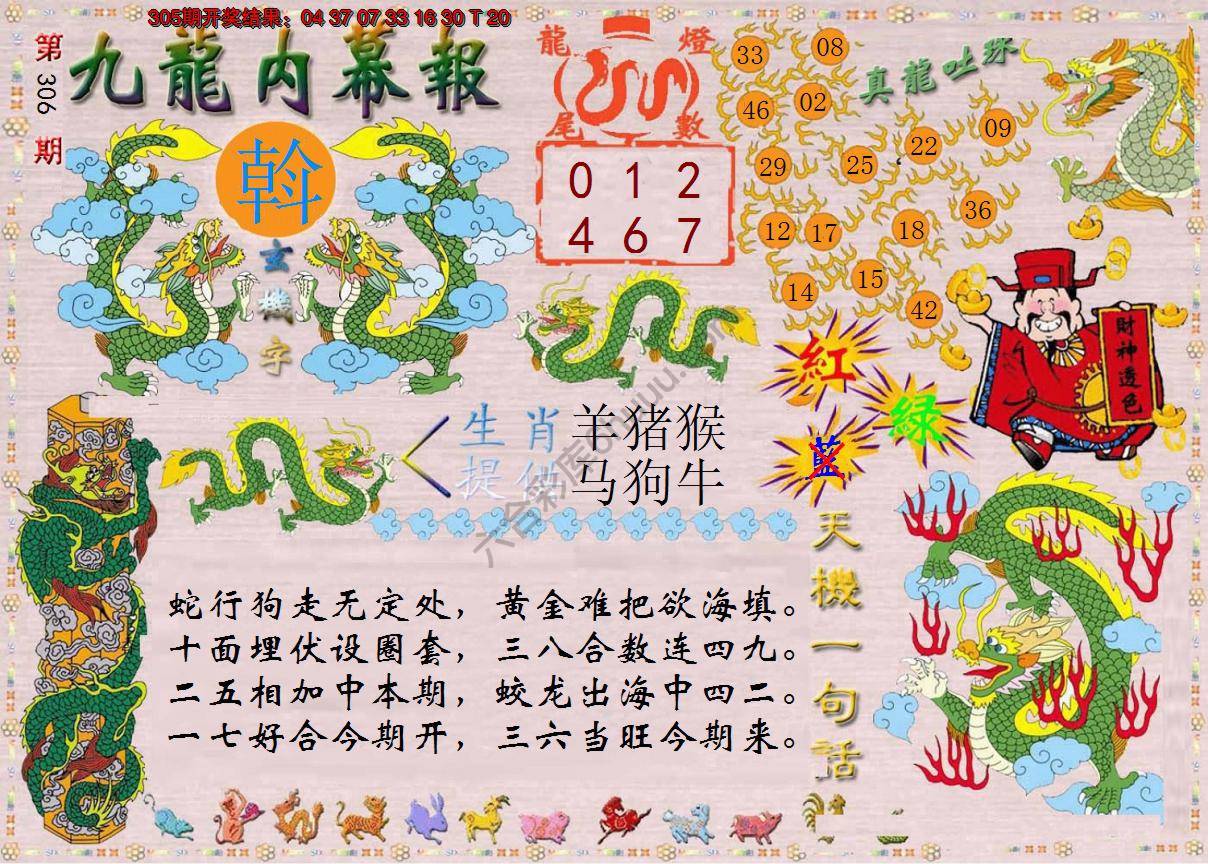 305期开奖结果：04 37 07 33 16 30 T 20
第306期
九龍内幕報
斡
玄機字
龍燈
尾數
0 1 2
4 6 7
真龍吐珠
33 08
46 02
22 09
29 25
12 17 18 36
14 15 42
財神透色
紅
綠
藍
生肖 羊猪猴
提供 马狗牛
天機一句话
蛇行狗走无定处，黄金难把欲海填。
十面埋伏设圈套，三八合数连四九。
二五相加中本期，蛟龙出海中四二。
一七好合今期开，三六当旺今期来。